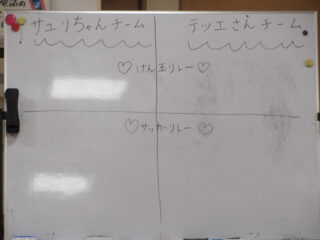 サユリちゃんチーム
テツエさんチーム
♡けん玉リレー♡
♡サッカーリレー♡